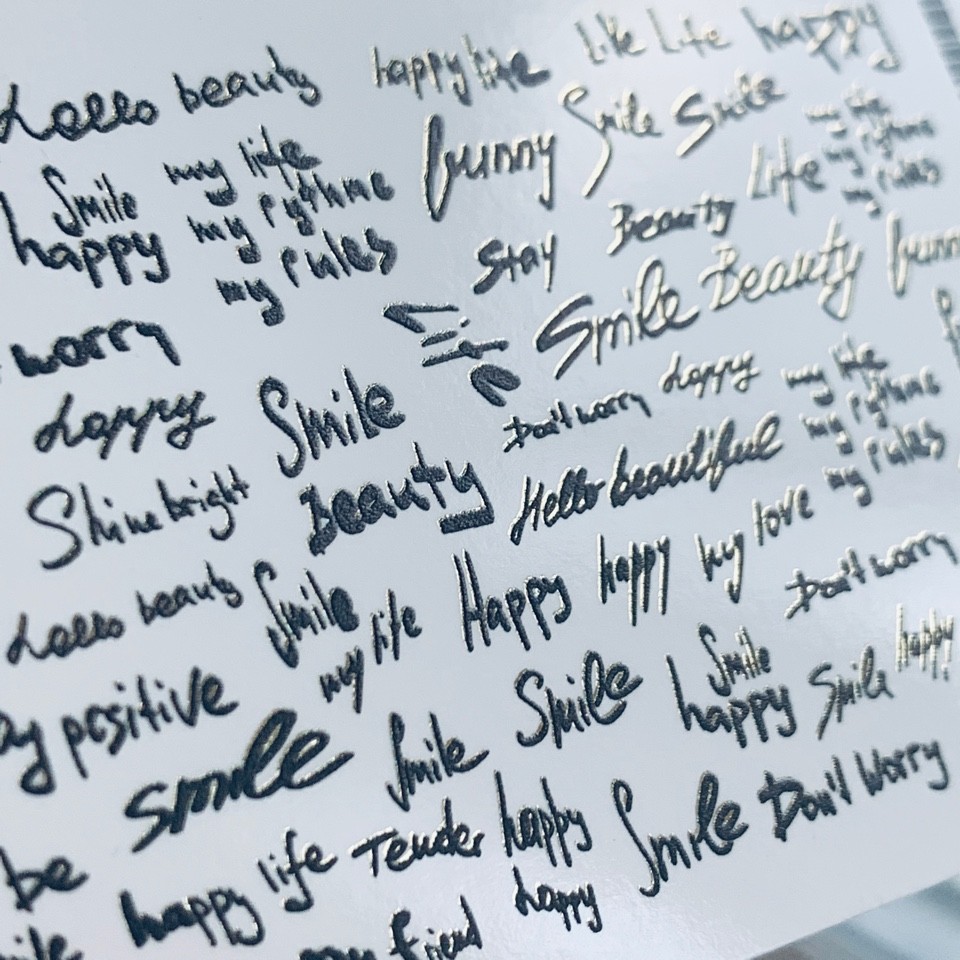 Hello beauty happy life Life Life happy
Smile my life funny Smile Smile my life
happy my rythme Life my rythme
my rules Stay Beauty my rules
worry Life Smile Beauty funn
happy Smile Don't worry happy my life
my rythme
Shine bright Beauty Hello beautiful my rules
Hello beauty Smile my life Happy happy my love Don't worry
positive Smile Smile Smile happy Smile happy
smile
be happy life Tender happy Smile Don't Worry
friend happy